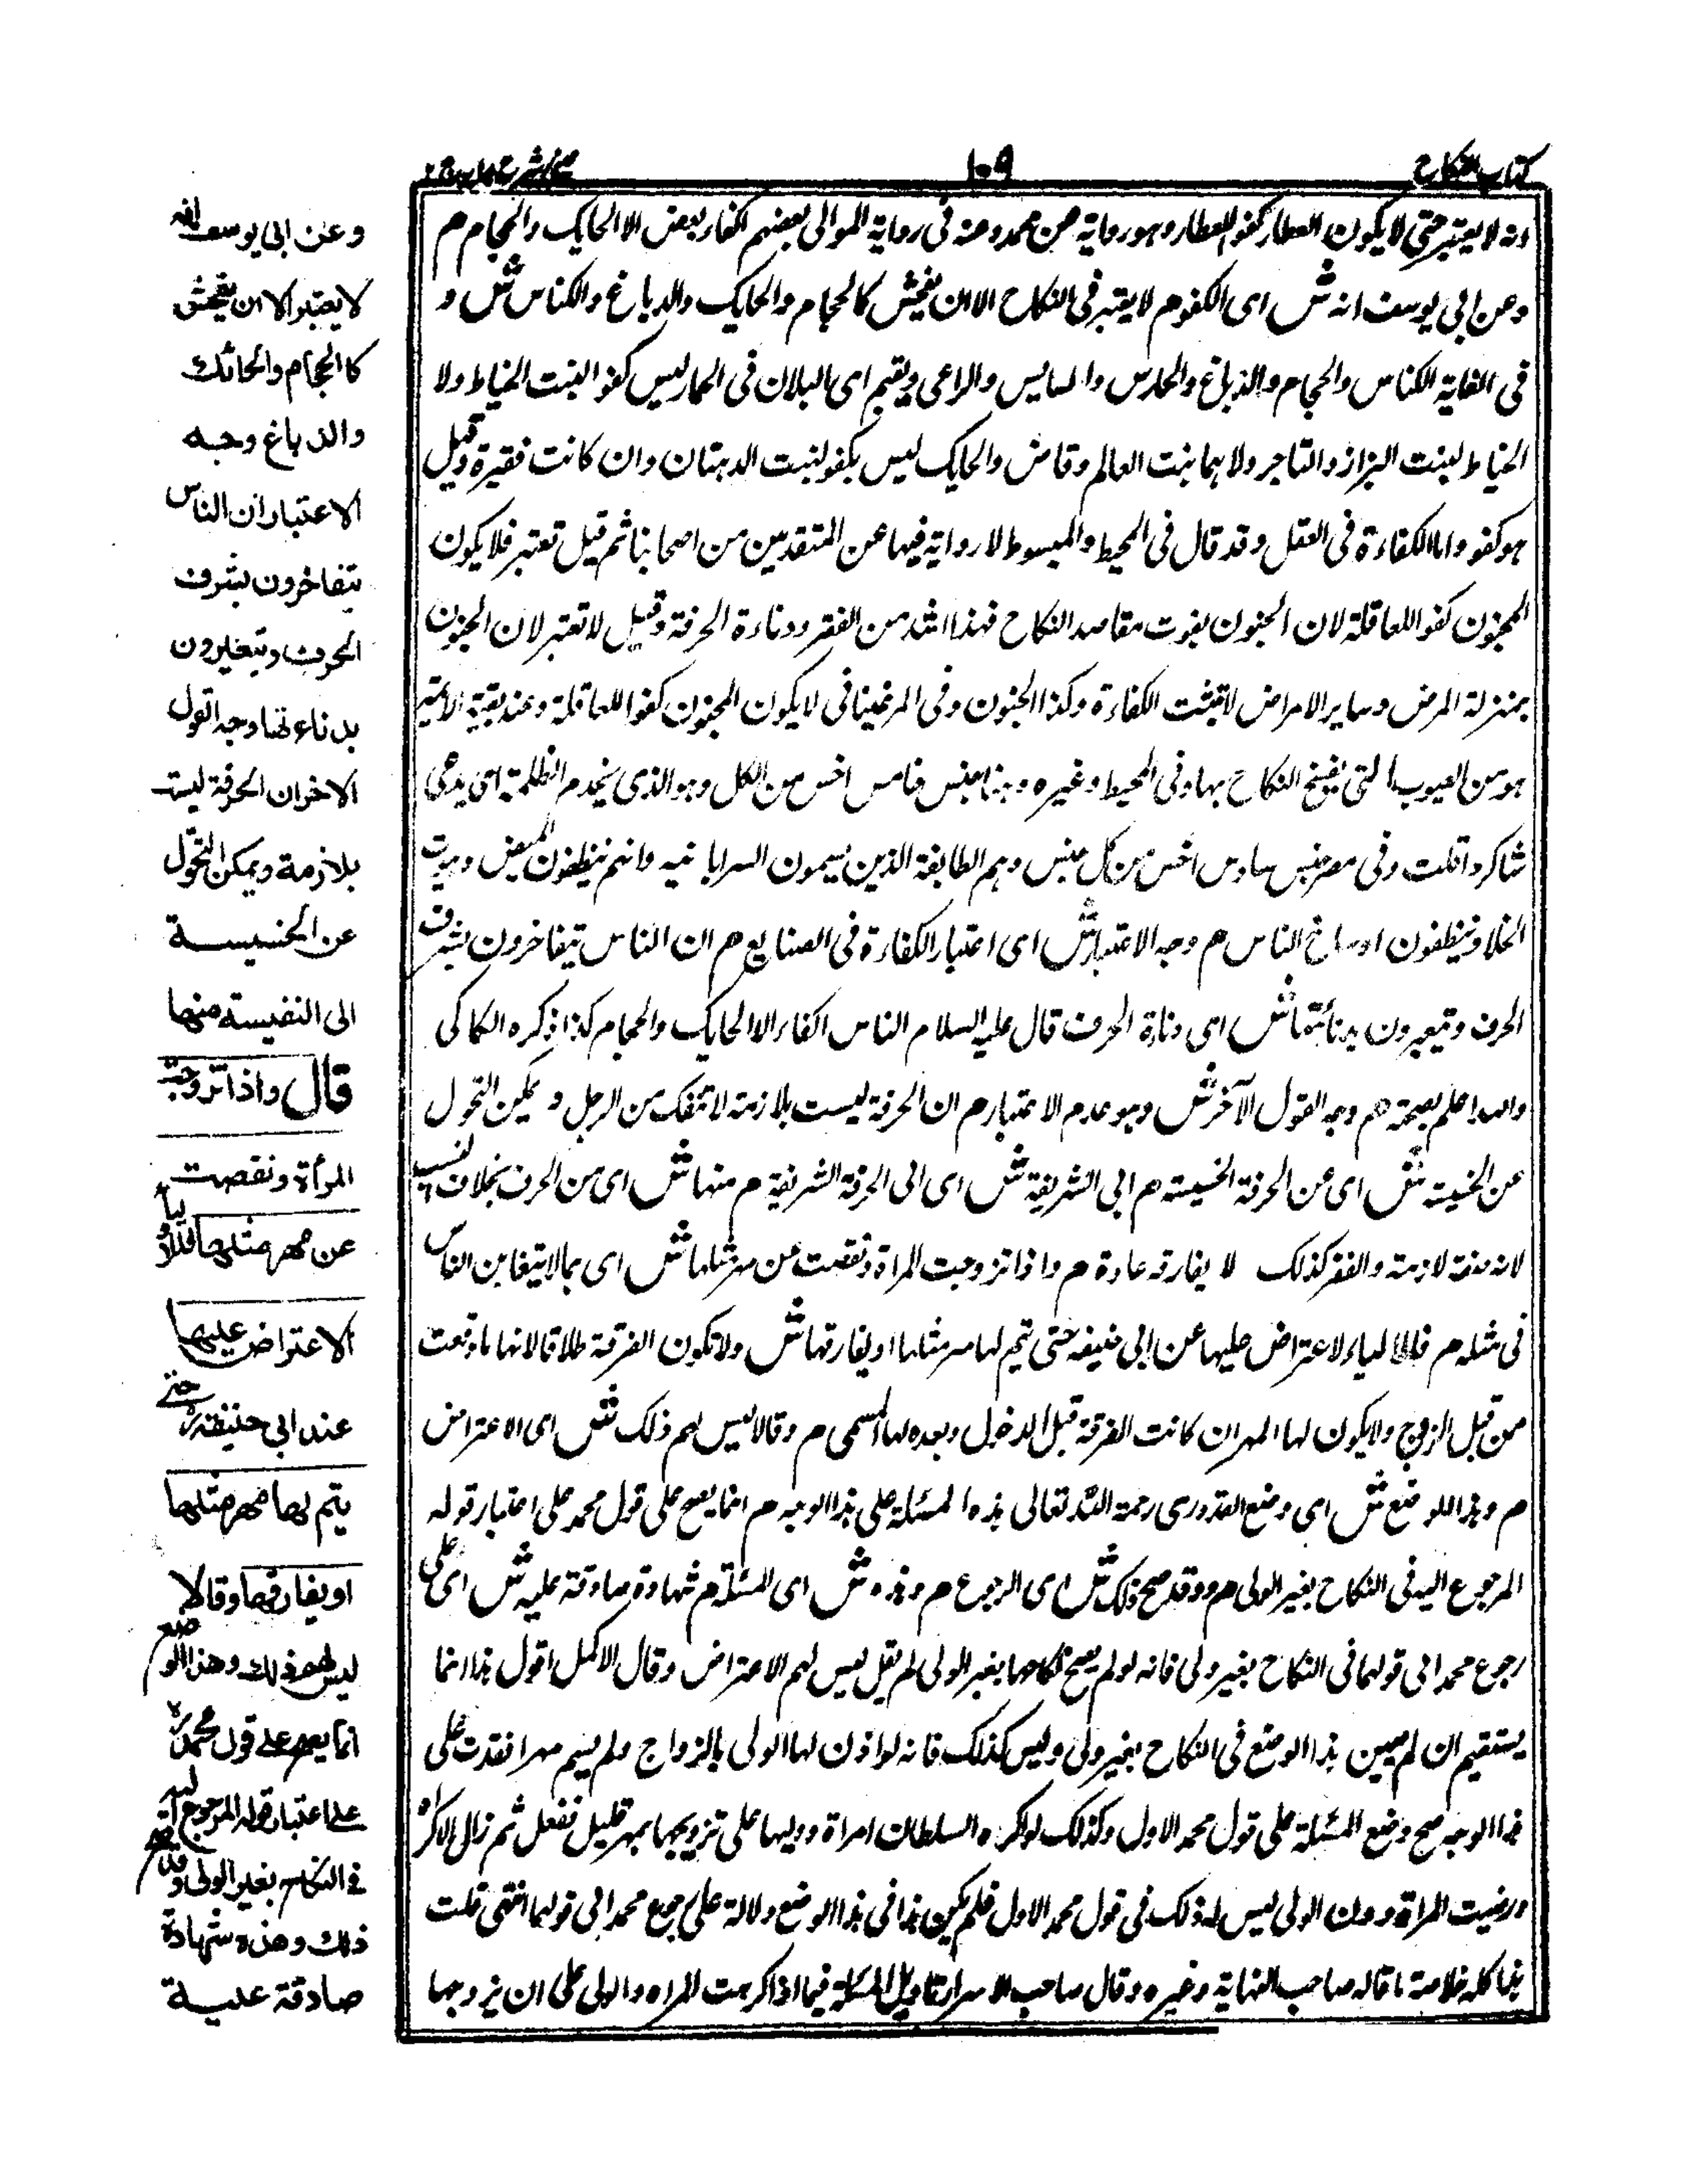 كتاب النكاح
١٠٩
انه لا يعتبر حتى لا يكون العطار كفوا للعطار وهو رواية عن محمد وعنه في رواية الموالي بعضهم اكفاء لبعض الا الحايك والحجام م
وعن ابي يوسف انه ش اى الكفو م لا يعتبر في النكاح الا ان يفحش كالحجام والحايك والدباغ والكناس ش و
في الغاية الكناس والحجام والدباغ والحارس والسايس والراعي والقيم اى البلان في الحمام ليس كفوا لبنت الخياط ولا
الخياط لبنت البزاز والتاجر ولا هما بنت العالم وقاض والحايك ليس بكفو لبنت الدهقان وان كانت فقيرة وقيل
هو كفو واما الكفاءة في العقل وقد قال في المحيط والمبسوط لا رواية فيها عن المتقدمين من اصحابنا ثم قيل تعتبر فلا يكون
المجنون كفوا للعاقلة لان الجنون يفوت مقاصد النكاح فهذا اشد من الفقر ودناءة الحرفة وقيل لا تعتبر لان الجنون
بمنزلة المرض وساير الامراض لا تثبت الكفاءة وكذا الجنون وفي المرغيناني لا يكون المجنون كفوا للعاقلة وعند بقية الائمة
هو من العيوب التى يفسخ النكاح بها وفي المحيط وغيره وهنا جنس خامس اخس من الكل وهو الذى يخدم الظلمة اى يدعى
شاكردا قلت وفي مصر جنس سادس اخس من كل جنس وهم الطايفة الذين يسمون السراباتيه وانهم ينظفون
الخلا وينظفون اوساخ الناس م وجه الاعتبار ش اى اعتبار الكفاءة في الصنايع م ان الناس يتفاخرون بشرف
الحرف ويتعيرون بدنائتها ش اى دناءة الحرف قال عليه السلام الناس اكفاء الا الحايك والحجام كذا ذكره الكاكى
والله اعلم بصحته م وجه القول الآخر ش وهو عدم الاعتبار م ان الحرفة ليست بلازمة لا تنفك من الرجل ويمكن التحول
عن الخسيسة ش اى عن الحرفة الخسيسة م الى الشريفة ش اى الى الحرفة الشريفة م منها ش اى من الحرف بخلاف النسب
لانه صفة لازمة والفقر كذلك لا يفارقه عادة م واذا تزوجت المراة ونقصت من مهر مثلها ش اى بما لا يتغابن الناس
في مثله م فللاولياء الاعتراض عليها عن ابي حنيفة حتى يتم لها مهر مثلها او يفارقها ش ولا تكون الفرقة طلاقا لانها ما وقعت
من قبل الزوج ولا يكون لها المهر ان كانت الفرقة قبل الدخول وبعده لها المسمى م وقالا ليس لهم ذلك ش اى الاعتراض
م وهذا الوضع ش اى وضع القدورى رحمة الله تعالى هذه المسئلة على هذا الوجه م انما يصح على قول محمد على اعتبار قوله
المرجوع اليه في النكاح بغير الولى م وقد صح ذلك ش اى الرجوع م وهذه ش اى المسئلة م شهادة صادقة عليه ش اى على
رجوع محمد الى قولهما في النكاح بغير ولى فانه لو لم يصح نكاحها بغير الولى لم يقل ليس لهم الاعتراض وقال الاكمل اقول هذا انما
يستقيم ان لم يبين هذا الوضع في النكاح بغير ولى وليس كذلك فانه لو اذن لها الولى بالزواج ولم يسم مهرا فعقدت على
هذا الوجه صح وضع المسئلة على قول محمد الاول وكذلك لو اكره السلطان امراة ووليها على تزويجها بمهر قليل ففعل ثم زال الاكراه
ورضيت المراة دون الولى ليس له ذلك في قول محمد الاول فلم يكن هذا في هذا الوضع دلالة على رجوع محمد الى قولهما انتهى قلت
هذا كله خلاصة ما قاله صاحب النهاية وغيره وقال صاحب الاسرار تاويل المسئلة فيما اذا اكرهت المراه والولى على ان يزوجها
وعن ابي يوسف انه
لا يعتبر الا ان يفحش
كالحجام والحائك
والدباغ وجه
الاعتبار ان الناس
يتفاخرون بشرف
الحرف ويتعيرون
بدناءتها وجه القول
الاخر ان الحرفة ليست
بلازمة ويمكن التحول
عن الخسيسة
الى النفيسة منها
قال واذا تزوجت
المرأة ونقصت
عن مهر مثلها فللاولياء
الاعتراض عليها
عند ابي حنيفة رح حتى
يتم لها مهر مثلها
او يفارقها وقالا
ليس لهم ذلك وهذا الوضع
انما يصح على قول محمد رح
على اعتبار قوله المرجوع اليه
في النكاح بغير الولى وقد صح
ذلك وهذه شهادة
صادقة عليه